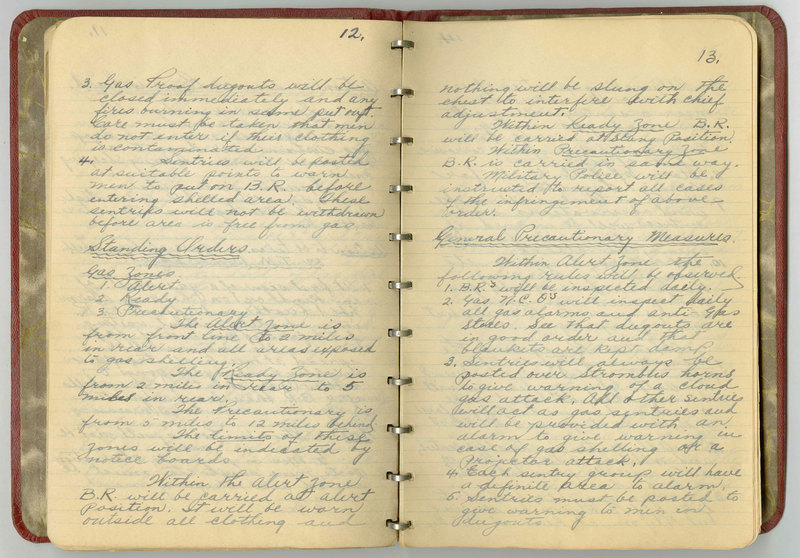 12.
3. Gas Proof dugouts will be
closed immediately and any
fires burning in same put out.
Care must be taken that men
do not enter if their clothing
is contaminated.
4. Sentries will be posted
at suitable points to warn
men to put on B.R. before
entering shelled area. These
sentries will not be withdrawn
before area is free from gas
Standing Orders.
Gas Zones
1. Alert
2. Ready
3. Precautionary
The Alert Zone is
from front line to 2 miles
in rear and all areas exposed
to gas shelling.
The Ready Zone is
from 2 miles in rear to 5
miles in rear.
The Precautionary is
from 5 miles to 12 miles behind
The limits of these
zones will be indicated by
notice boards
Within the Alert Zone
B.R. will be carried at alert
position. It will be worn
outside all clothing and
13.
nothing will be slung on the
chest to interfere with chief
adjustment.
Within Ready Zone B.R.
will be carried in Position.
Within Precautionary Zone
B.R. is carried in same way.
Military Police will be
instructed to report all cases
of the infringement of above
order.
General Precautionary Measures.
Within Alert Zone the
following rules will be observed
1. B.R.s will be inspected daily.
2. Gas N.C.O's will inspect daily
all gas alarms and anti-gas
stores. See that dugouts are
in good order and that
blankets are kept damp
3. Sentries will always be
posted over Strombus horns
to give warning of a cloud
gas attack. All other sentries
will act as gas sentries and
will be provided with an
alarm to give warning in
case of gas shelling or a
Projector attack.
4. Each sentry group will have
a definite area to alarm.
5. Sentries must be posted to
give warning to men in
dugouts.